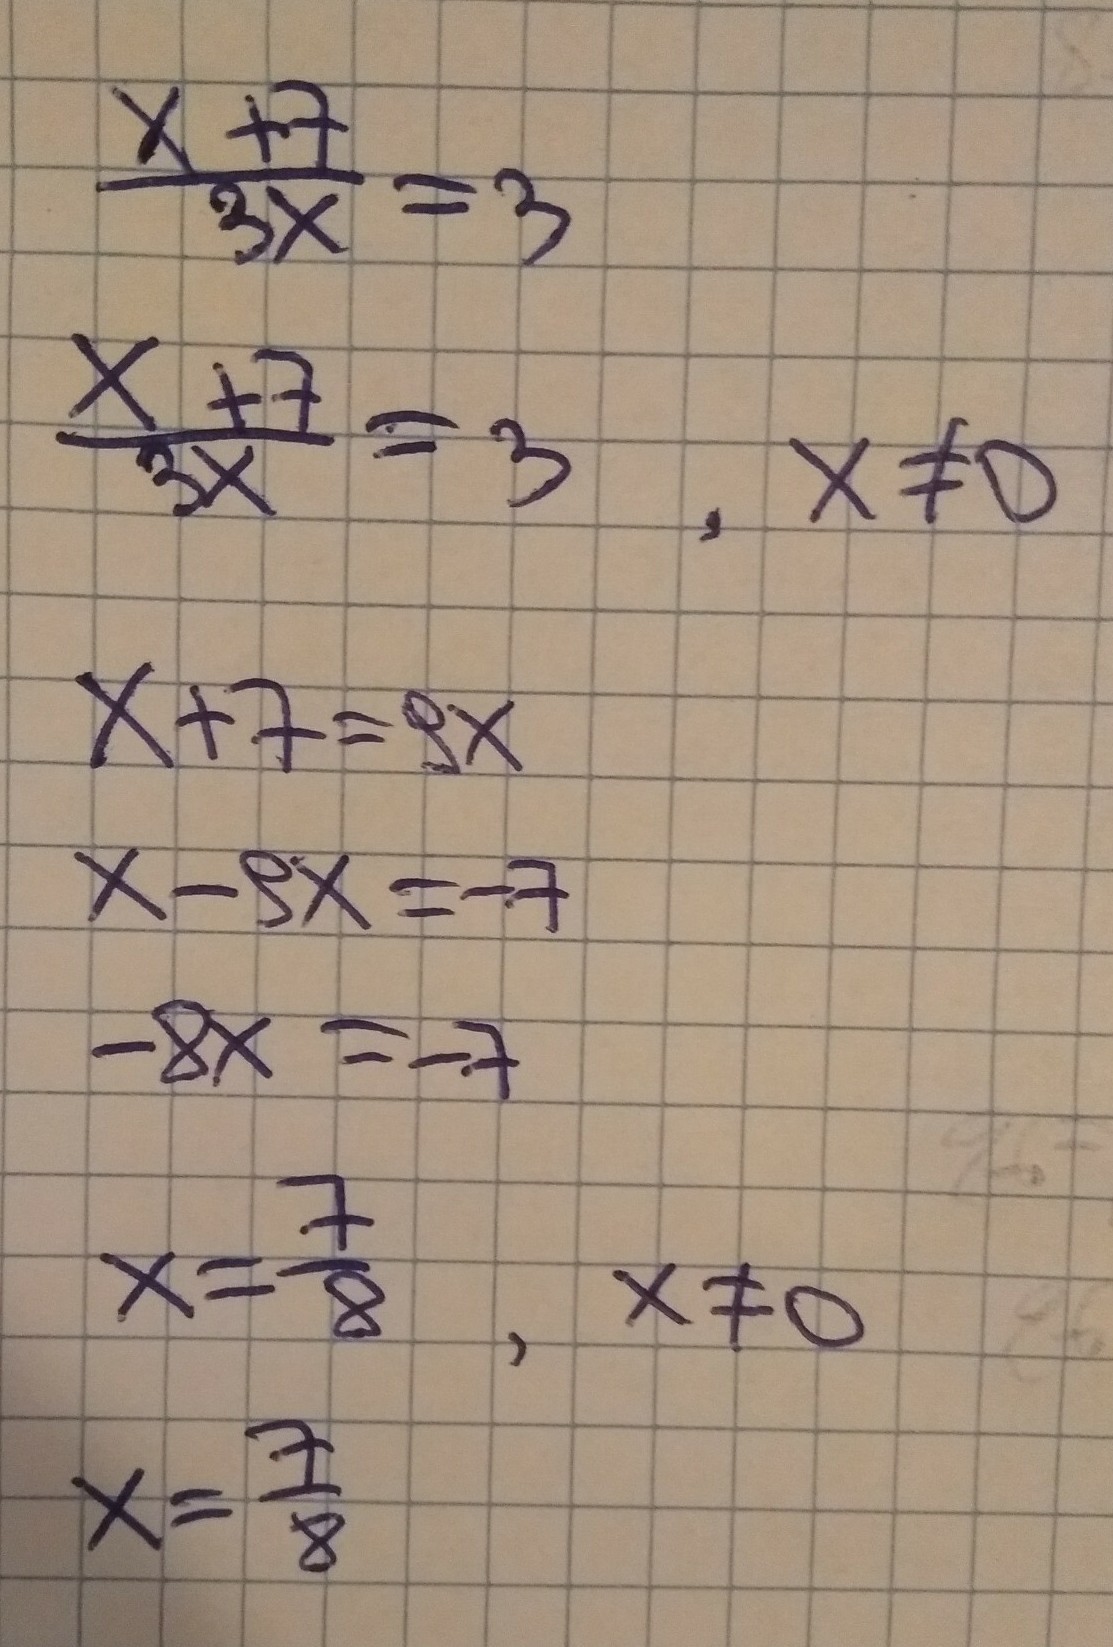 x+7/3x = 3
x+7/3x = 3, x≠0
x+7=9x
x-9x=-7
-8x=-7
x=7/8, x≠0
x=7/8